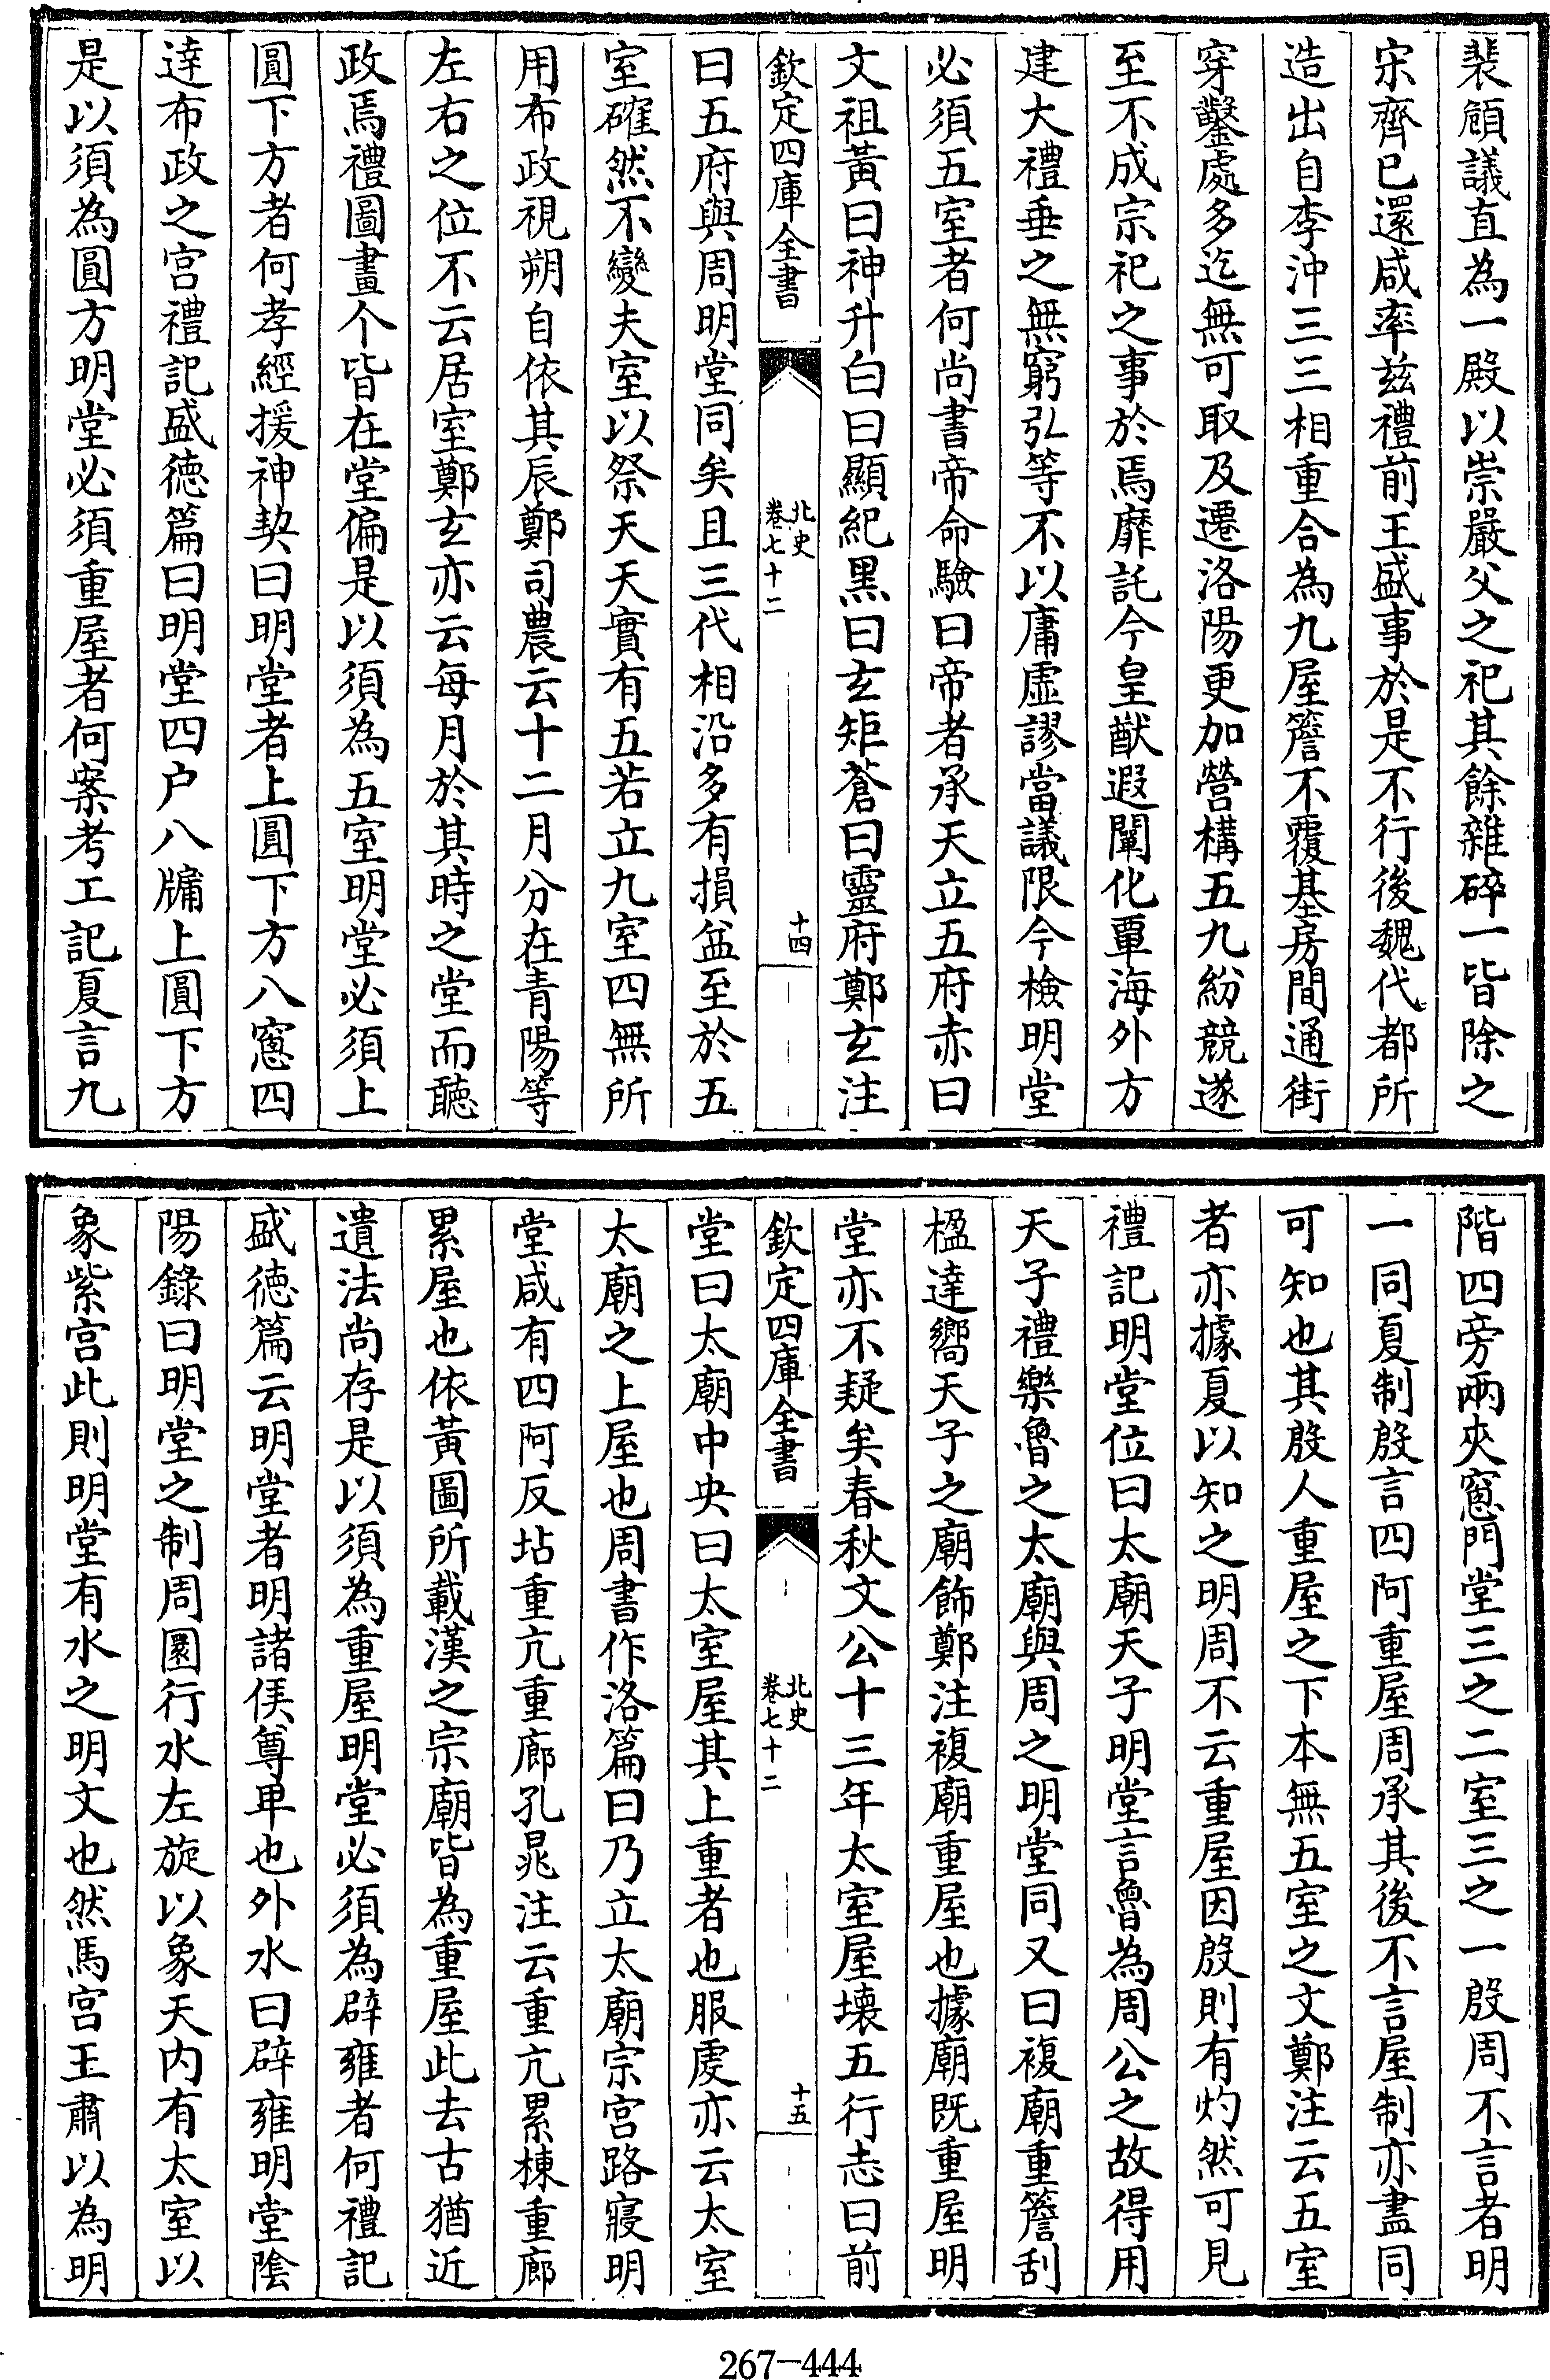 裴頠議直為一殿以崇嚴父之祀其餘雜碎一皆除之
宋齊已還咸率兹禮前王盛事於是不行後魏代都所
造出自李沖三三相重合為九屋簷不覆基房間通街
穿鑿處多迄無可取及遷洛陽更加營構五九紛競遂
至不成宗祀之事於焉靡託今皇猷遐闡化覃海外方
建大禮垂之無窮弘等不以庸虛謬當議限今檢明堂
必須五室者何尚書帝命驗曰帝者承天立五府赤曰
文祖黃曰神升白曰顯紀黑曰玄矩蒼曰靈府鄭玄注
欽定四庫全書
北史
卷七十二
十四
曰五府與周明堂同矣且三代相沿多有損益至於五
室確然不變夫室以祭天天實有五若立九室四無所
用布政視朔自依其辰鄭司農云十二月分在青陽等
左右之位不云居室鄭玄亦云每月於其時之堂而聽
政焉禮圖畫个皆在堂偏是以須為五室明堂必須上
圓下方者何孝經援神契曰明堂者上圓下方八窻四
達布政之宫禮記盛德篇曰明堂四户八牖上圓下方
是以須為圓方明堂必須重屋者何案考工記夏言九
階四旁兩夾窻門堂三之二室三之一殷周不言者明
一同夏制殷言四阿重屋周承其後不言屋制亦盡同
可知也其殷人重屋之下本無五室之文鄭注云五室
者亦據夏以知之明周不云重屋因殷則有灼然可見
禮記明堂位曰太廟天子明堂言魯為周公之故得用
天子禮樂魯之太廟與周之明堂同又曰複廟重簷刮
楹達嚮天子之廟飾鄭注複廟重屋也據廟既重屋明
堂亦不疑矣春秋文公十三年太室屋壞五行志曰前
欽定四庫全書
北史
卷七十二
十五
堂曰太廟中央曰太室屋其上重者也服虔亦云太室
太廟之上屋也周書作洛篇曰乃立太廟宗宫路寢明
堂咸有四阿反坫重亢重廊孔晁注云重亢累棟重廊
累屋也依黃圖所載漢之宗廟皆為重屋此去古猶近
遺法尚存是以須為重屋明堂必須為辟雍者何禮記
盛德篇云明堂者明諸侯尊卑也外水曰辟雍明堂陰
陽錄曰明堂之制周圜行水左旋以象天内有太室以
象紫宫此則明堂有水之明文也然馬宫王肅以為明
267-444